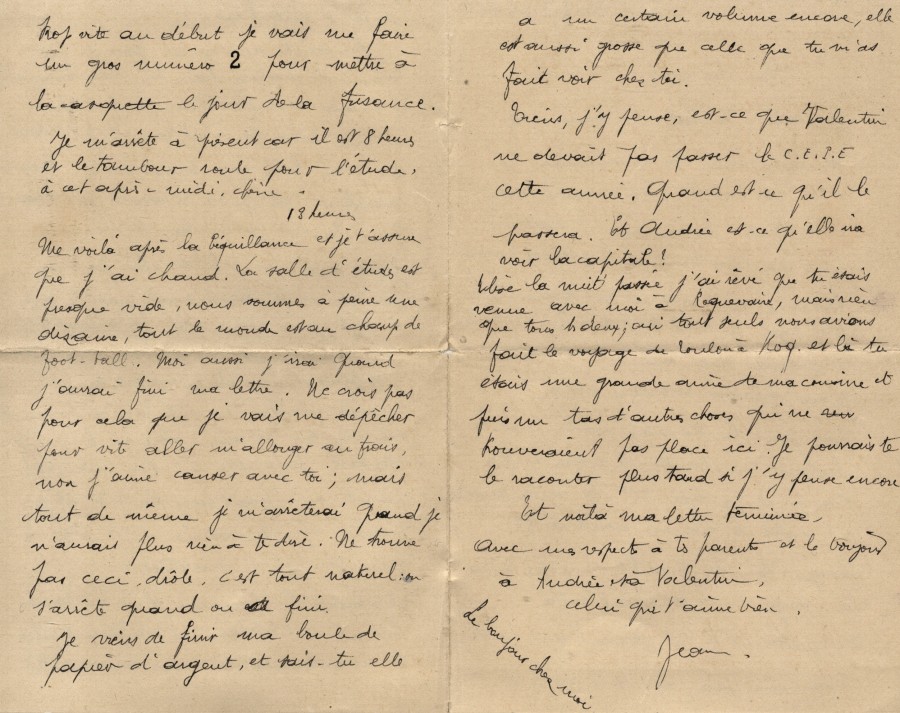 trop vite au début je vais me faire
un gros numéro 2 pour mettre à
la casquette le jour de la
Je m'arrête à présent car il est 8 heures
et le tambour roule pour l'étude,
à cet après-midi, chérie.
13 heures
Me voilà après la béquillance et je t'assure
que j'ai chaud. La salle d'études est
presque vide, nous sommes à peine une
dizaine, tout le monde est au champ de
foot-ball. Moi aussi j'irai quand
j'aurai fini ma lettre. Ne crois pas
pour cela que je vais me dépêcher
pour vite aller m'allonger au frais,
non j'aime causer avec toi; mais
tout de même je m'arrêterai quand je
n'aurais plus rien à te dire. Ne trouve
pas ceci, drôle, c'est tout naturel: on
s'arrête quand on a fini.
Je viens de finir ma boule de
papier d'argent, et sais-tu elle
a un certain volume encore, elle
est aussi grosse que celle que tu m'as
fait voir chez toi.
Tiens, j'y pense, est-ce que Valentin
ne devait pas passer le C.E.P.E
cette année. Quand est-ce qu'il le
passera. Et Andrée est-ce qu'elle ira
voir la capitale!
la nuit passée j'ai rêvé que tu étais
venue avec moi à Roquevaire, mais rien
que tous les deux; tout seuls nous avions
fait le voyage de Toulon à Roq. et là tu
étais une grande amie de ma cousine et
puis un tas d'autres choses qui ne
trouveraient pas place ici. Je pourrais te
le raconter plus tard si j'y pense encore
Et voilà ma lettre terminée,
avec mes respects à tes parents et le bonjour
à Andrée et à Valentin,
celui qui t'aime bien.
Jean.
Le bonjour chez moi